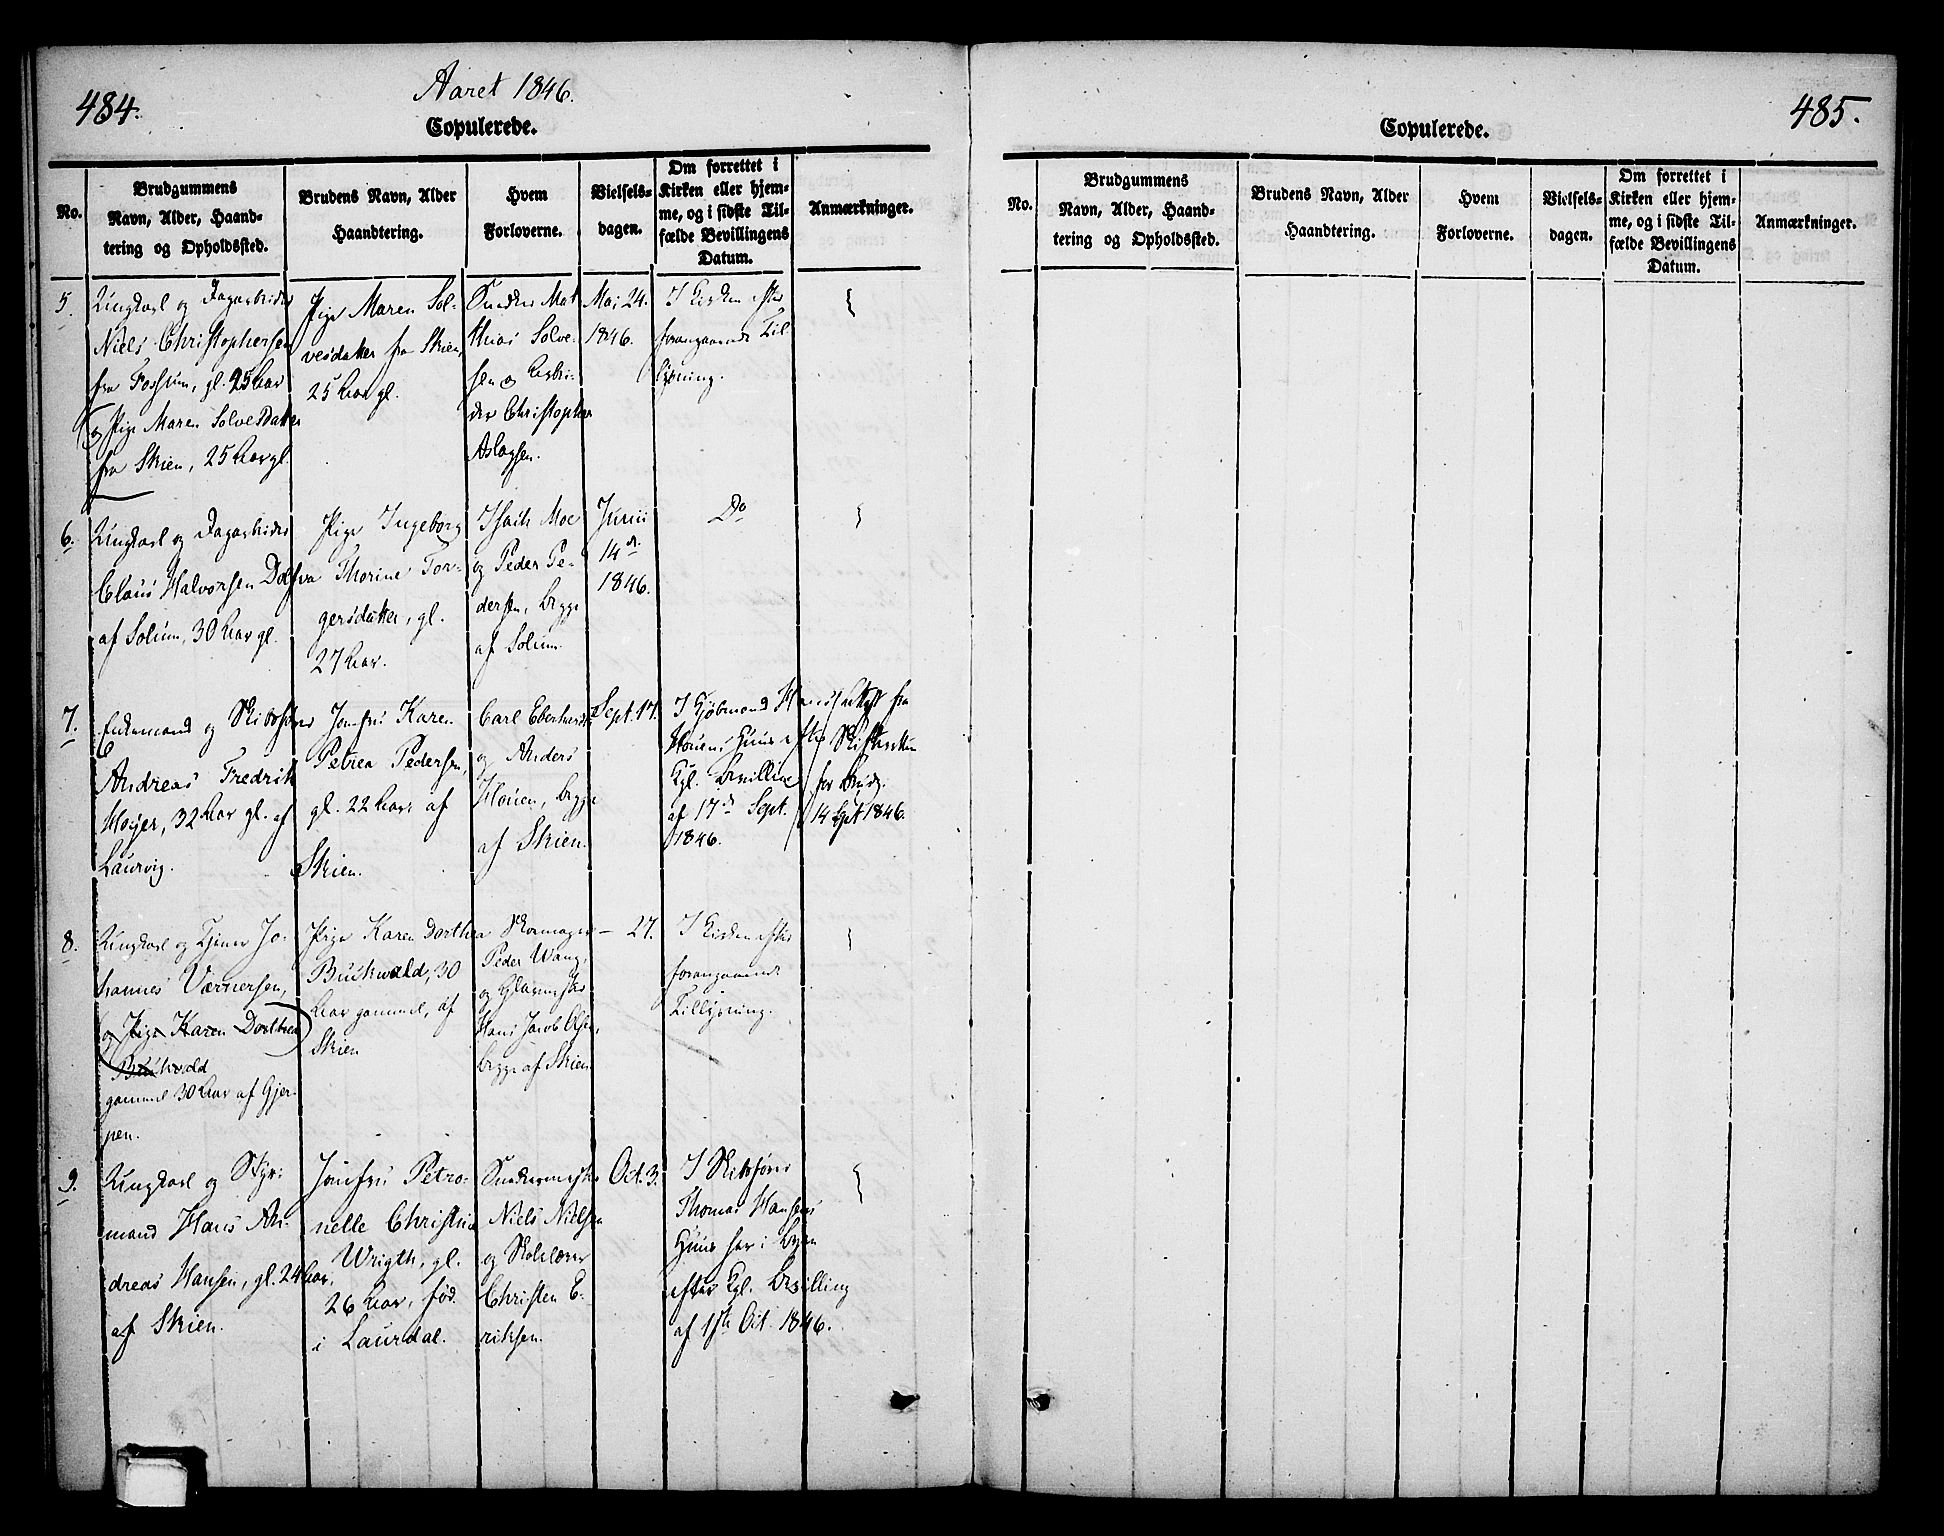 484.
Aaret 1846.
Copulerede.
No.
Brudgummens
Navn, Alder, Haand-
tering og Opholdssted.
Brudens Navn, Alder
Haandtering.
Hvem
Forloverne.
Vielsels-
dagen.
Om forrettet i
Kirken eller hjem-
me, og i sidste Til-
fælde Bevillingens
Datum.
Anmærkninger.
5.
Ungkarl og Dagarbeider
Niels Christophersen
fra Fossum, gl. 25 Aar
og Pige Maren Solvesdatter
fra Skien, 25 Aar gl.
Pige Maren Sol-
vesdatter fra Skien,
25 Aar gl.
Snedker Mat
thias Solve-
sen og Arbei-
der Christopher
Aslagsen.
Mai 24.
1846.
I Kirken efter
foregaaende Til
lysning.
6.
Ungkarl og Dagarbeider
Claus Halvorsen Dolfva
af Solum, 30 Aar gl.
Pige Ingeborg
Thorine Tor-
gersdatter, gl.
27 Aar.
Isach Moe
og Peder Pe-
dersen, begge
af Solum.
Junii
14 d.
1846.
Do
7.
Enkemand og Skibsfører
Andreas Fredrik
Hoyer, 32 Aar gl. af
Laurvig.
Jomfru Karen
Petrea Pedersen,
gl. 22 Aar, af
Skien.
Carl Eberhardt
og Anders
Houen, begge
af Skien.
Sept. 17.
I Kjøbmand Hans
Houens Huus efter
Kgl. Bevilling
af 17 d. Sept.
1846.
Attest fra
Skifteretten
for Brudg.
14 Sept 1846.
8.
Ungkarl og Tjener Jo-
hannes Værnersen,
og Pige Karen Dorthea
Buchwald
gammel 30 Aar af Gjer-
pen.
Pige Karen Dorthea
Buchwald, 30
Aar gammel, af
Skien
Skomager
Peder Wang,
og Glarmester
Hans Jacob Olsen,
begge af Skien
— 27.
I Kirken efter
foregaaende
Tillysning.
9.
Ungkarl og Styr-
mand Hans An-
dreas Hansen, gl. 24 Aar,
af Skien.
Jomfru Petro-
nelle Christine
Wrigth, gl.
26 Aar, fød.
i Laurdal.
Snedkermester
Niels Nielsen
og Skolelærer
Christen E-
riksen.
Oct. 3.
I Skibsfører
Thomas Hansens
Huus her i Byen
efter Kgl. Bevilling
af 1ste Oct. 1846.
485.
Copulerede.
No.
Brudgummens
Navn, Alder, Haand-
tering og Opholdssted.
Brudens Navn, Alder
Haandtering.
Hvem
Forloverne.
Vielsels-
dagen.
Om forrettet i
Kirken eller hjem-
me, og i sidste Til-
fælde Bevillingens
Datum.
Anmærkninger.